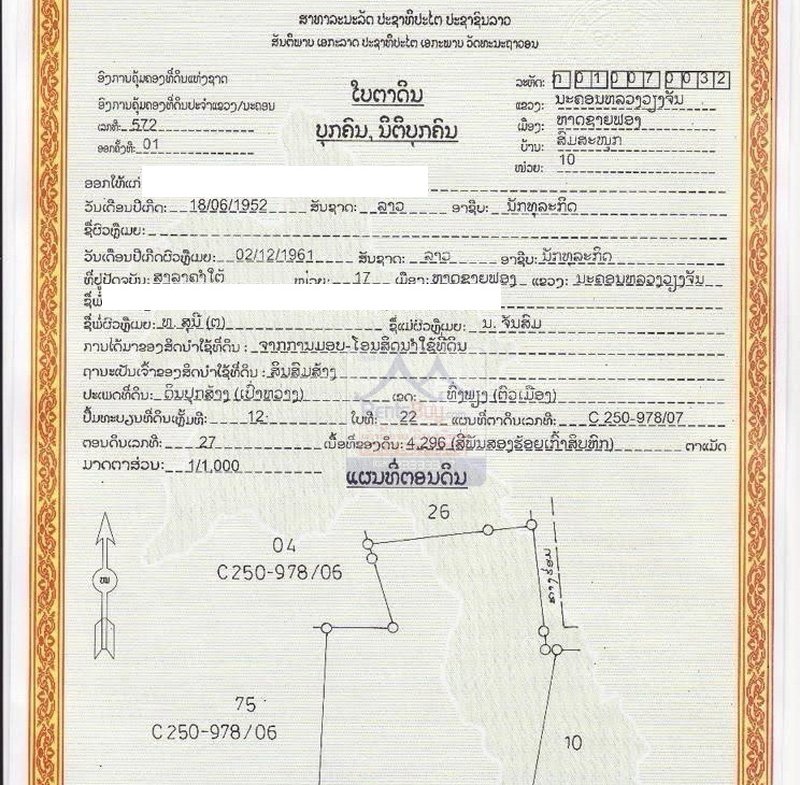 ສາທາລະນະລັດ ປະຊາທິປະໄຕ ປະຊາຊົນລາວ
ສັນຕິພາບ ເອກະລາດ ປະຊາທິປະໄຕ ເອກະພາບ ວັດທະນະຖາວອນ
ອົງການຄຸ້ມຄອງທີ່ດິນແຫ່ງຊາດ
ອົງການຄຸ້ມຄອງທີ່ດິນປະຈຳແຂວງ/ນະຄອນ
ເລກທີ: 572
ອອກຄັ້ງທີ: 01
ໃບຕາດິນ
ບຸກຄົນ, ນິຕິບຸກຄົນ
ລະຫັດ: ກ 0 1 0 0 7 0 0 3 2
ແຂວງ: ນະຄອນຫລວງວຽງຈັນ
ເມືອງ: ຫາດຊາຍຟອງ
ບ້ານ: ສົມສະໜຸກ
ໜ່ວຍ: 10
ອອກໃຫ້ແກ່
ວັນເດືອນປີເກີດ: 18/06/1952 ສັນຊາດ: ລາວ ອາຊີບ: ນັກທຸລະກິດ
ຊື່ຜົວຫຼືເມຍ:
ວັນເດືອນປີເກີດຜົວຫຼືເມຍ: 02/12/1961 ສັນຊາດ: ລາວ ອາຊີບ: ນັກທຸລະກິດ
ທີ່ຢູ່ປັດຈຸບັນ: ສາລາຄຳໃຕ້ ໜ່ວຍ: 17 ເມືອງ: ຫາດຊາຍຟອງ ແຂວງ: ນະຄອນຫລວງວຽງຈັນ
ຊື່ພໍ່
ຊື່ພໍ່ຜົວຫຼືເມຍ: ທ. ສຸນີ (ຕ) ຊື່ແມ່ຜົວຫຼືເມຍ: ນ. ຈັນສົມ
ການໄດ້ມາຂອງສິດນຳໃຊ້ທີ່ດິນ : ຈາກການມອບ-ໂອນສິດນຳໃຊ້ທີ່ດິນ
ຖານະເປັນເຈົ້າຂອງສິດນຳໃຊ້ທີ່ດິນ : ສິນສົມສ້າງ
ປະເພດທີ່ດິນ: ດິນປຸກສ້າງ (ເປົ່າຫວ່າງ) ເຂດ: ທົ່ງພຽງ (ຕົວເມືອງ)
ປື້ມທະບຽນທີ່ດິນເຫຼັ້ມທີ: 12 ໃບທີ: 22 ແຜນທີ່ຕາດິນເລກທີ: C 250-978/07
ຕອນດິນເລກທີ: 27 ເນື້ອທີ່ຂອງດິນ: 4,296 (ສີ່ພັນສອງຮ້ອຍເກົ້າສິບຫົກ) ຕາແມັດ
ມາດຕາສ່ວນ: 1/1,000
ແຜນທີ່ຕອນດິນ
26
04
C250-978/06
ທາງຮ່ອມ
ໜ
75
C250-978/06
10